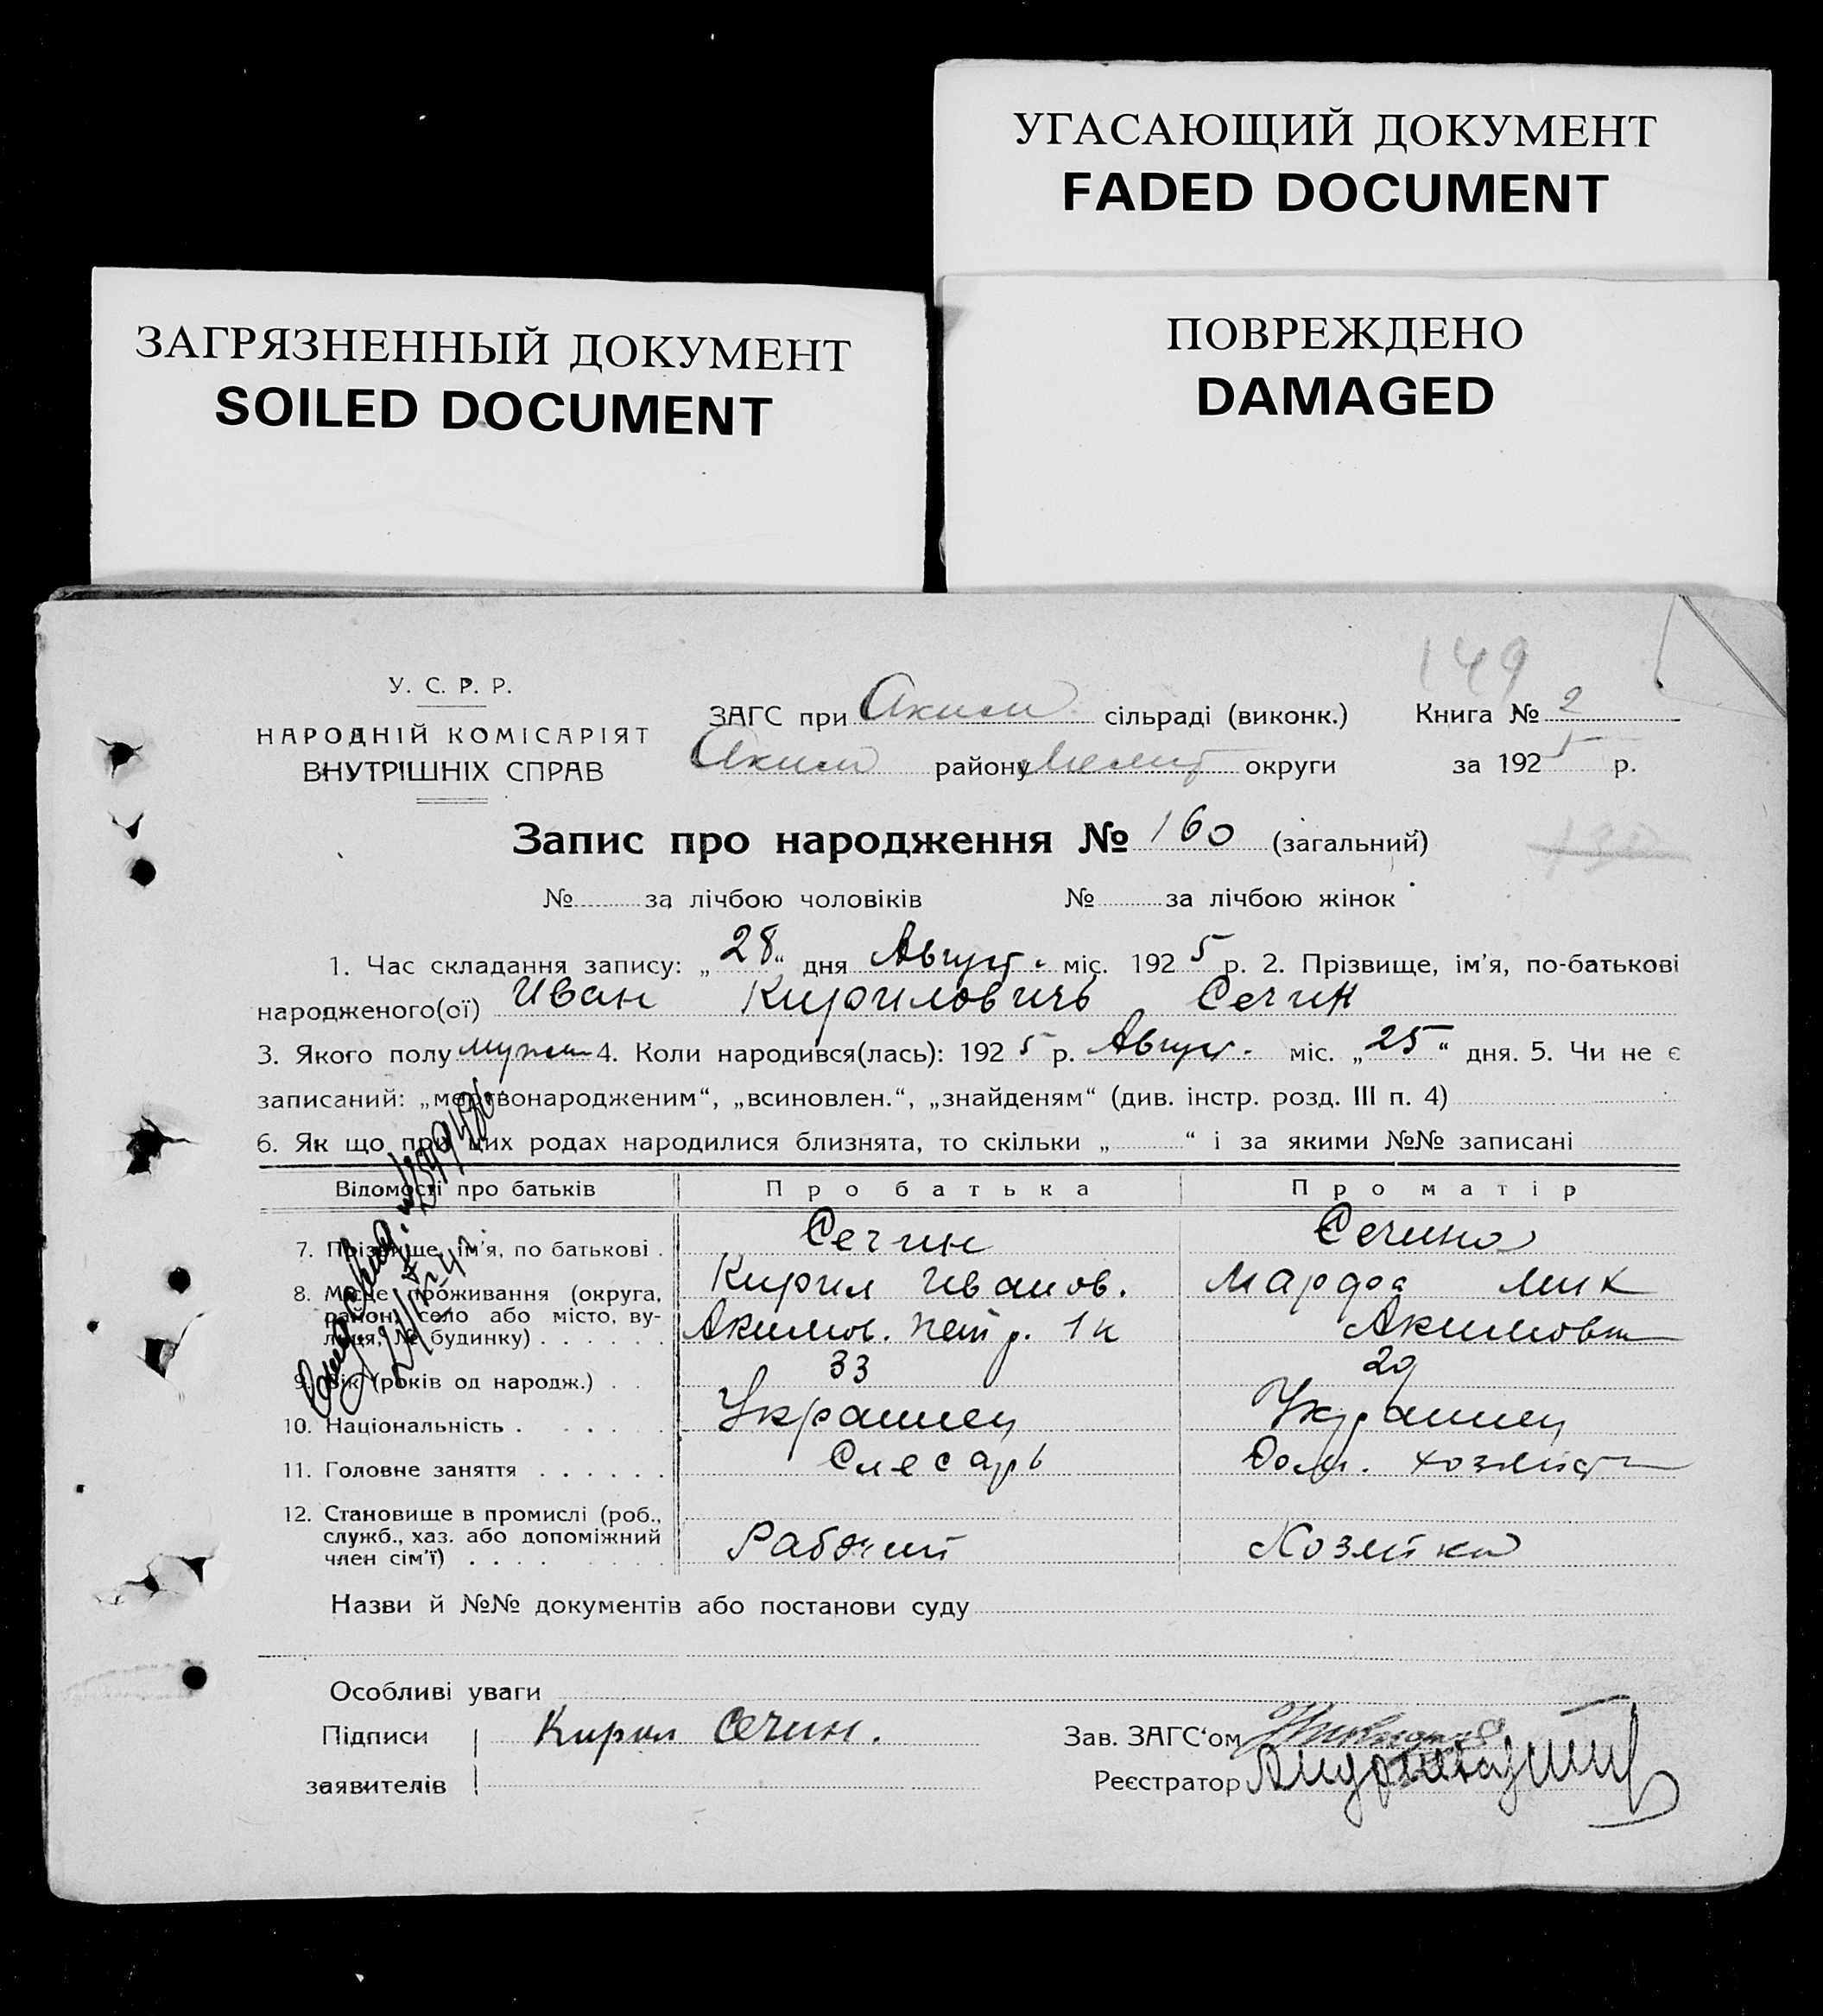 УГАСАЮЩИЙ ДОКУМЕНТ
FADED DOCUMENT
ЗАГРЯЗНЕННЫЙ ДОКУМЕНТ
SOILED DOCUMENT
ПОВРЕЖДЕНО
DAMAGED
149
У. С. Р. Р.
НАРОДНІЙ КОМІСАРІЯТ
ВНУТРІШНІХ СПРАВ
ЗАГС при Аким сільраді (виконк.) Книга № 2
Аким району Мелит округи за 1925 р.
Запис про народження № 160 (загальний)
130
№ за лічбою чоловіків № за лічбою жінок
1. Час складання запису: „28“ дня Август. міс. 1925 р. 2. Прізвище, ім'я, по-батькові
народженого(ої) Иван Кирилович Сечин
3. Якого полу мужск 4. Коли народився(лась): 1925 р. Август. міс. „25“ дня. 5. Чи не є
записаний: „мертвонародженим“, „всиновлен.“, „знайденям“ (див. інстр. розд. III п. 4)
6. Як що при цих родах народилися близнята, то скільки „ “ і за якими №№ записані
Відомості про батьків Про батька Про матір
7. Прізвище, ім'я, по батькові . Сечин Сечина
8. Місце проживання (округа, Кирил Иванов. Марфа
район, село або місто, ву-
лиця, № будинку) . . . . . . Акимов. Петр. 1 к Акимовк
9. Вік (років од народж.) . . 33 29
10. Національність . . . . . Украинец Украинец
11. Головне заняття . . . . . . Слесарь Дом. хозяйст
12. Становище в промислі (роб.,
служб., хаз. або допоміжний
член сім'ї) . . . . . . . . Рабочий Хозяйка
Назви й №№ документів або постанови суду
Особливі уваги
Підписи Кирил Сечин. Зав. ЗАГС‘ом
заявителів Реєстратор